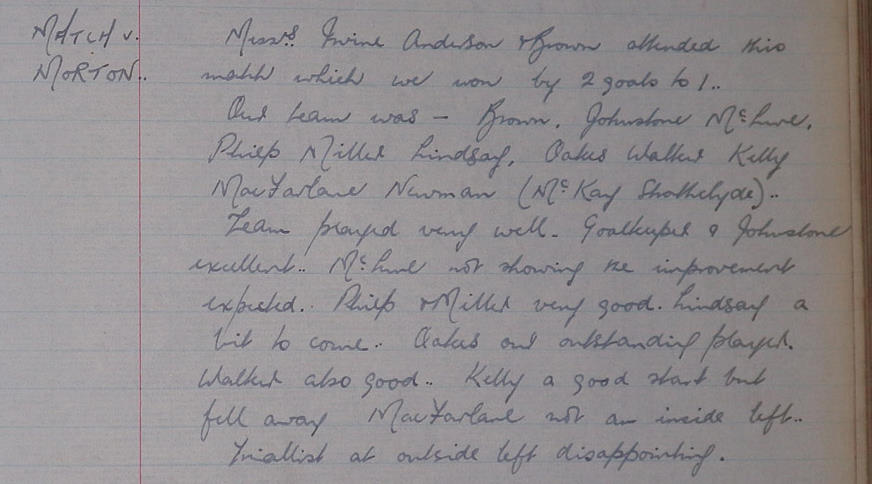 MATCH v.
MORTON..
Messrs. Irvine Anderson & Brown attended this
match which we won by 2 goals to 1..
Our team was – Brown. Johnstone McLure.
Philp Miller Lindsay, Oakes Walker Kelly
MacFarlane Newman (McKay Strathclyde)..
Team played very well. Goalkeeper & Johnstone
excellent.. McLure not showing the improvement
expected.. Philp & Miller very good. Lindsay a
bit to come.. Oakes our outstanding player.
Walker also good.. Kelly a good start but
fell away MacFarlane not an inside left..
Triallist at outside left disappointing.